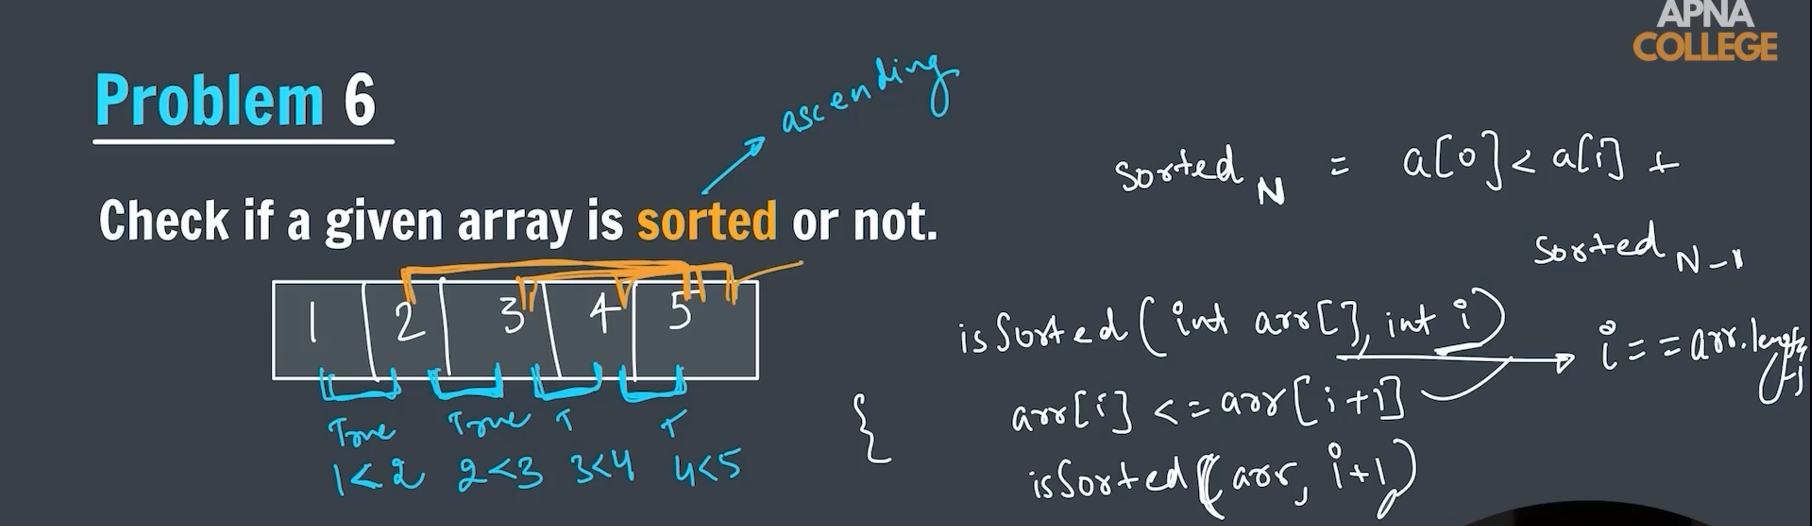 APNA
COLLEGE
Problem 6
ascending
Check if a given array is sorted or not.
1 2 3 4 5
True True T T
1<2 2<3 3<4 4<5
sorted N = a[0] < a[i] +
sorted N-1
isSorted(int arr[], int i)
i==arr.length-1
{ arr[i] <= arr[i+1]
isSorted(arr, i+1)